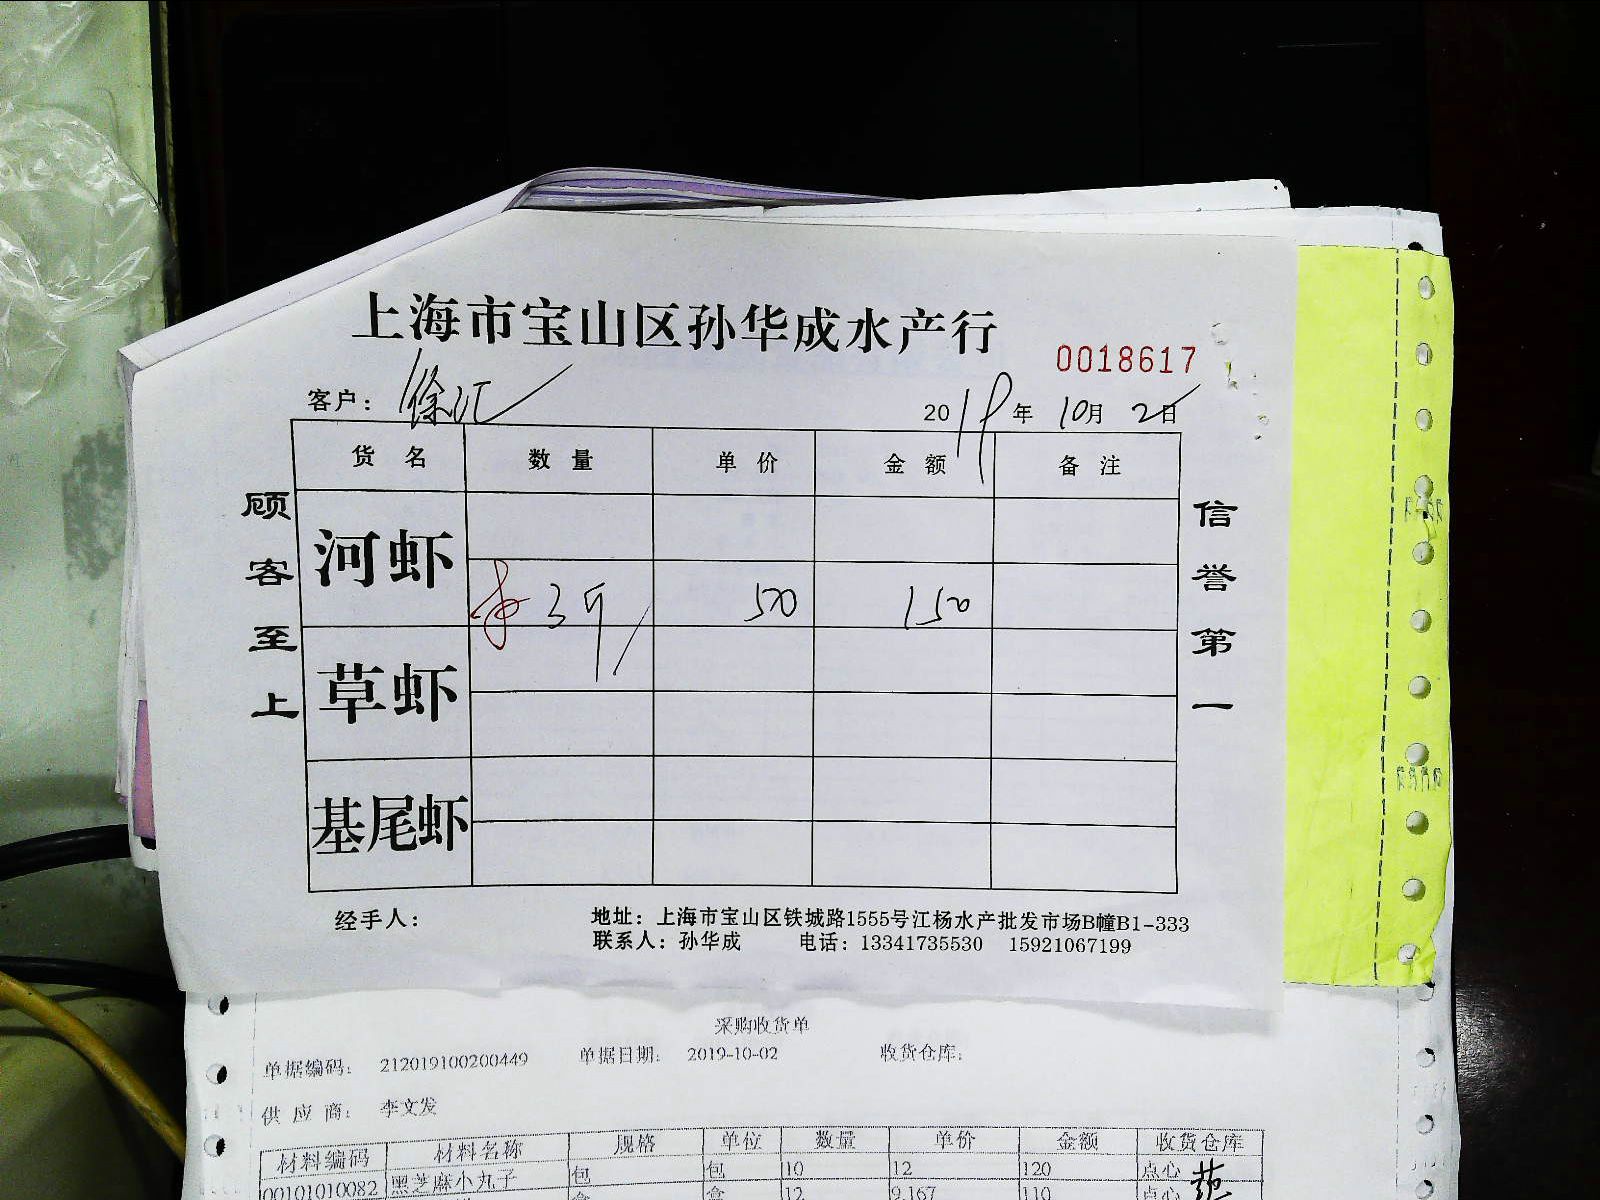 上海市宝山区孙华成水产行
0018617
客户：徐汇 2019年 10月 2日
货名 数量 单价 金额 备注
河虾
3斤 50 150
草虾
基尾虾
顾客至上
信誉第一
经手人： 地址：上海市宝山区铁城路1555号江杨水产批发市场B幢B1-333
联系人：孙华成 电话：13341735530 15921067199
采购收货单
单据编码： 212019100200449 单据日期： 2019-10-02 收货仓库：
供应商： 李文发
材料编码 材料名称 规格 单位 数量 单价 金额 收货仓库
00101010082 黑芝麻小丸子 包 包 10 12 120 点心
盒 盒 12 9.167 110 点心